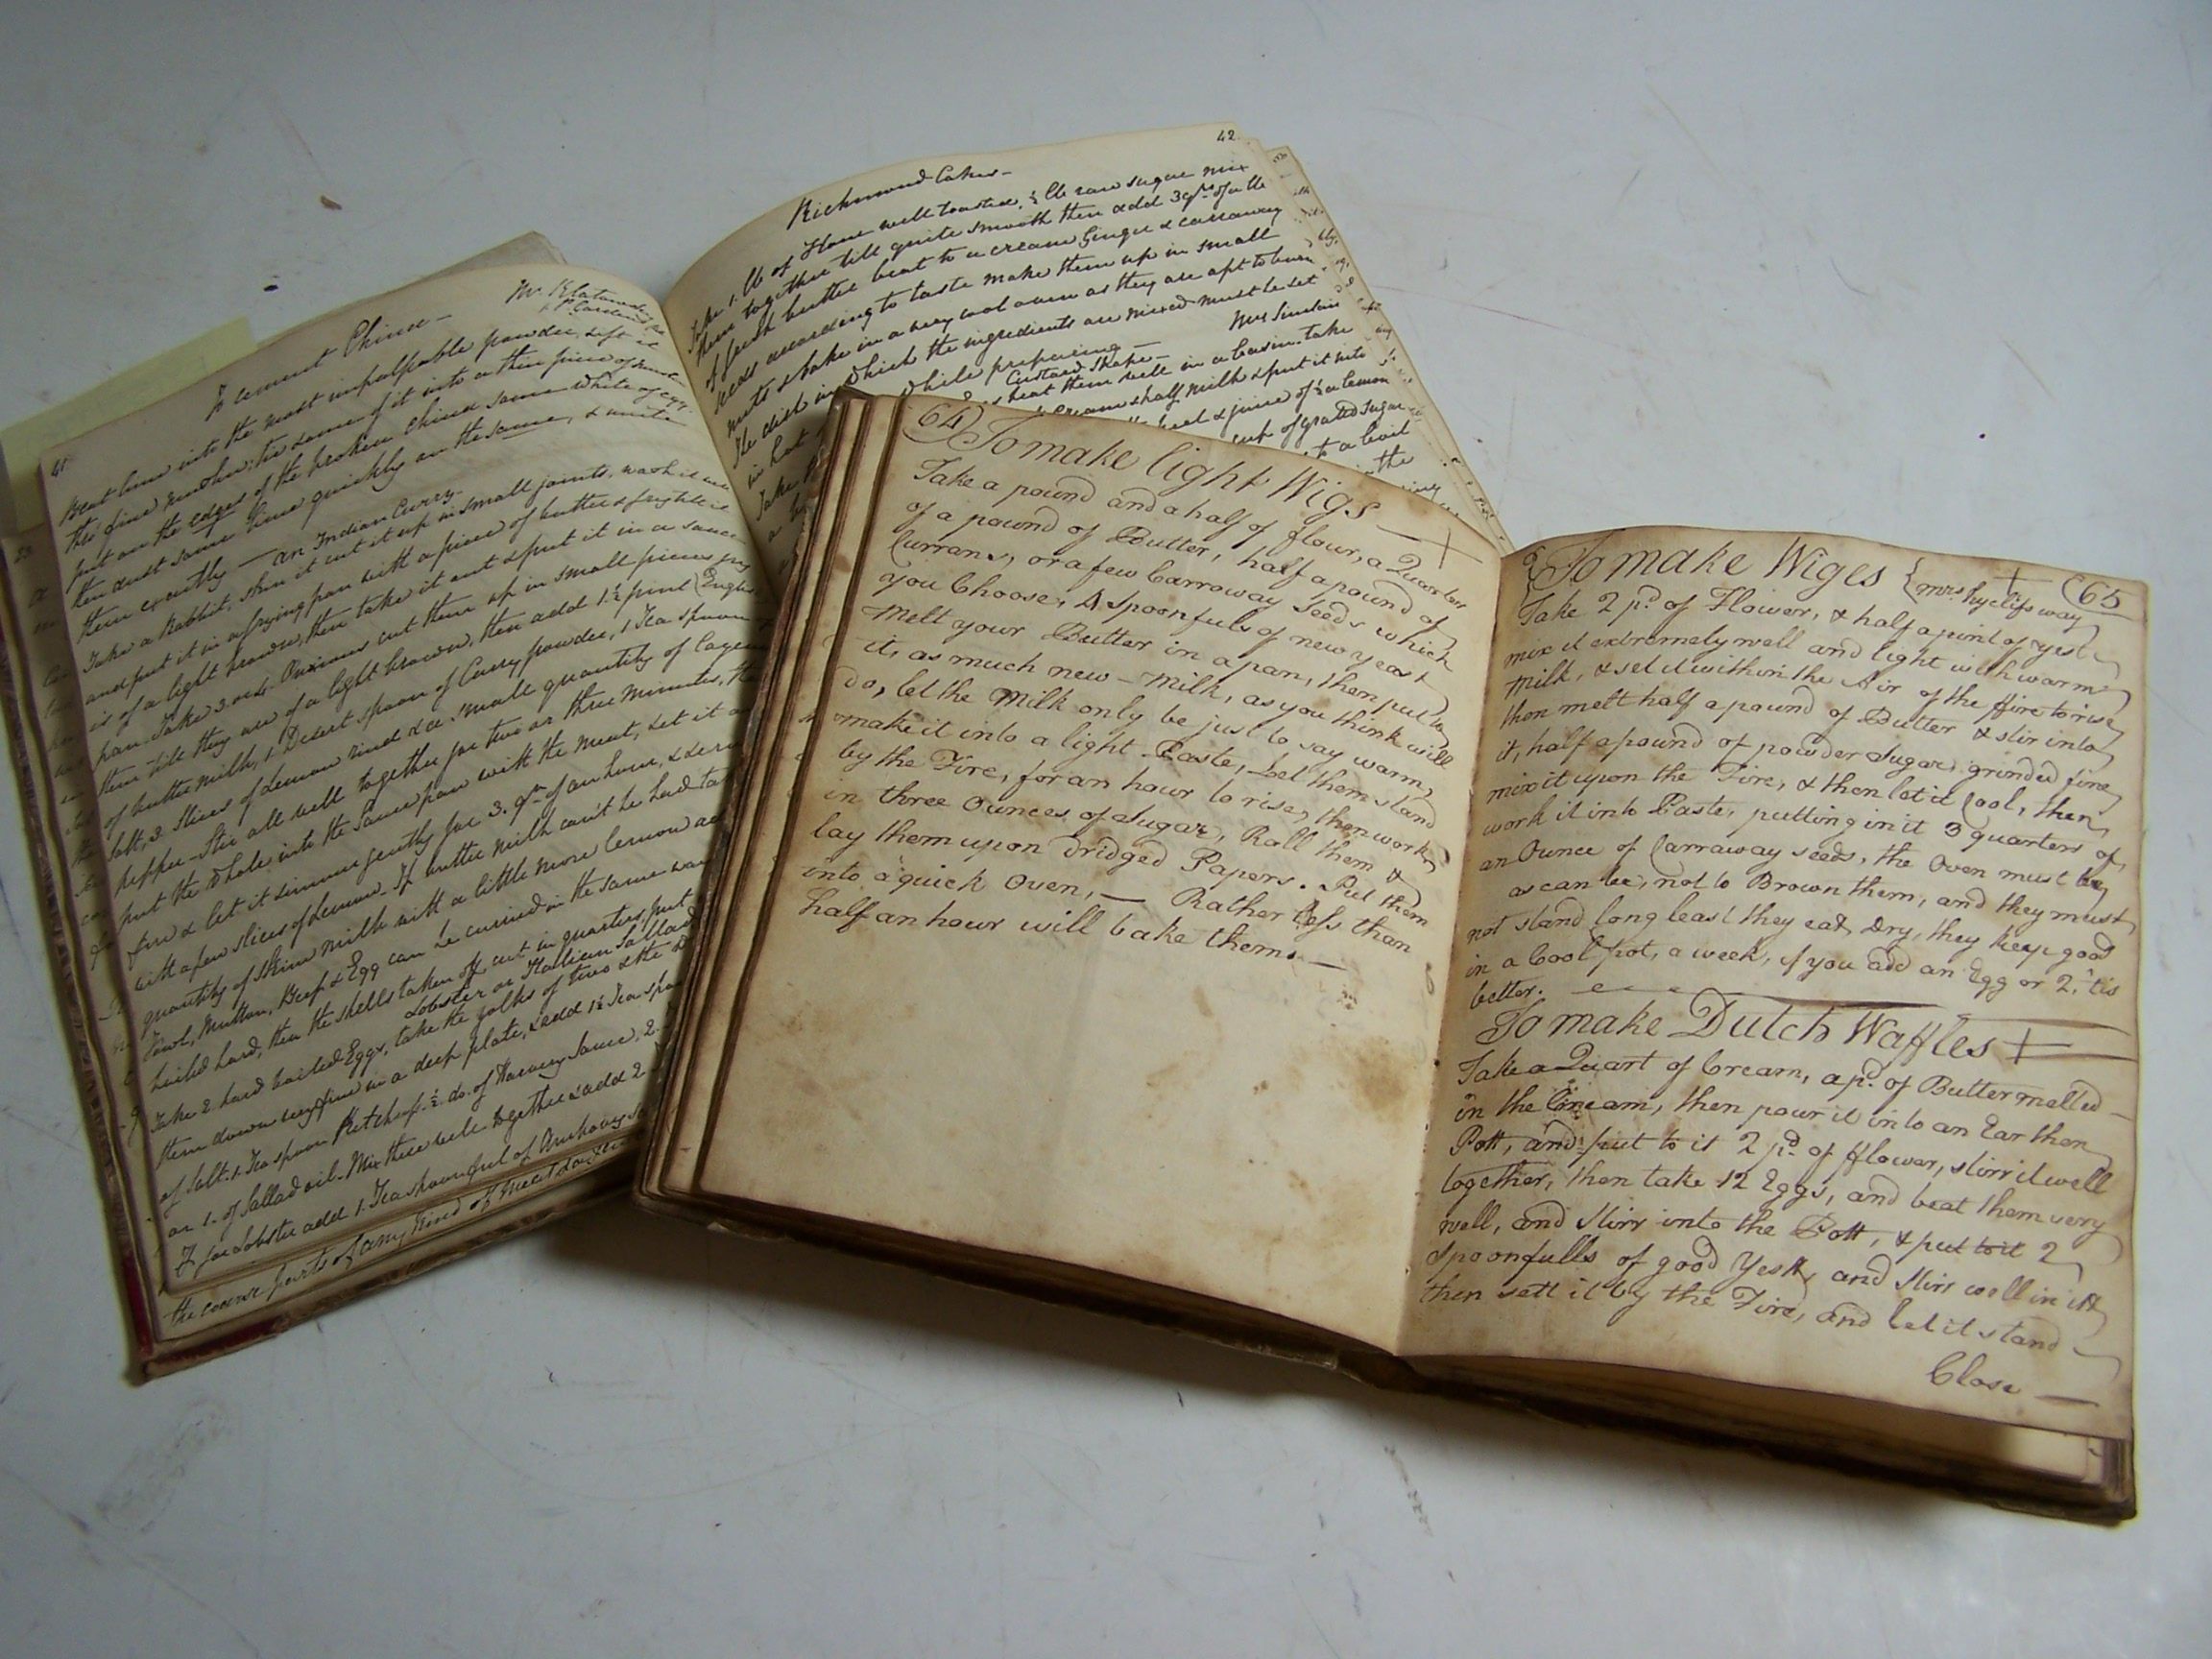 41
To cement China-
Mr. Klatowsky
Beat lime into the most impalpable powder, sift it
thro' fine muslin: tie some of it into a thin piece of muslin
put on the edges of the broken china some white of egg.
then dust some lime quickly on the same, & unite
them exactly — an Indian Curry-
Take a Rabbit, skin it cut it up in small joints, wash it
and put it in a frying pan with a piece of butter & fry till it
is of a light brown, then take it out & put it in a sauce
pan. Take 3 Onions cut them up in small pieces fry
them till they are of a light brown, then add 1½ pint (English
of butter milk, 1 Desert spoon of Curry powder, 1 Tea spoon
Salt, 3 Slices of Lemon rind & a small quantity of Cayenne
pepper - Stir all well together for two or three minutes,
put the whole into the Sauce pan with the meat, set it
fire & let it simmer gently for 3. qrs. of an hour, &
with a few slices of Lemon. If butter milk can't be had
quantity of skim milk with a little more lemon
Fowl, Mutton, Beef & Egg can be curried in the same
boiled hard, then the shells taken off, cut in quarters, put
Lobster or Itallian Sallad
Take 2 hard boiled Eggs, take the yolks of two &
them down very fine in a deep plate, add 1½ Tea
of Salt. 1 Tea spoon Ketchup ½ do. of Harvey Sauce, 2
or 1. of Sallad oil. Mix these well together & add 2
If for Lobster add 1. Tea spoonful of Anchovy
the coarse parts of any kind of meat
42
Richmond Cakes-
Take 1. lb of Flour well toasted, ½ lb raw sugar mix
them together till quite smooth then add 3 qrs. of a lb
of fresh butter beat to a cream Ginger & carraway
seeds according to taste make them up in small
nuts & bake in a very cool oven as they are apt to burn
The dish in which the ingredients are mixed must be set
in hot while preparing Mrs Sinclair
Custard Shape-
beat them well in a basin. take
cream & half milk & put it into
peel & juice of ½ a lemon
of grated sugar
to a boil
the
64 To make light Wigs +
Take a pound and a half of flour, a Quarter
of a pound of Butter, half a pound of
Currans, or a few Carroway Seeds which
you Choose, 4 Spoonfuls of new yeast
Melt your Butter in a pan, then put to
it, as much new-Milk, as you think will
do, let the Milk only be just to say warm,
make it into a light Paste, Let them stand
by the Fire, for an hour to rise, then work
in three Ounces of Sugar, Roll them &
lay them upon Dridged Papers. Put them
into a quick Oven, — Rather less than
half an hour will bake them. —
To make Wiges { Mrs hyclifs way + 65
Take 2 pd. of Flower, & half a pint of yest
mix it extremely well and light with warm
Milk, & set it within the Air of the ffire to rise
then melt half a pound of Butter & stir into
it, half a pound of powder Sugar, grinded fine
mix it upon the Fire, & then let it Cool, then,
work it into Paste, putting in it 3 quarters of
an Ounce of Carraway seeds, the Oven must be
as can be, not to Brown them, and they must
not stand long least they eat Dry, they keep good
in a Cool pot, a week, if you add an Egg or 2, tis
better.
To make Dutch Waffles +
Take a Quart of Cream, a pd. of Butter melted
in the Cream, then pour it into an Earthen
Pott, and put to it 2 pd. of fflower, stirr it well
together, then take 12 Eggs, and beat them very
well, and Stirr into the Pott, & put to it 2
Spoonfulls of good Yestt, and Stirr well in itt
then sett it by the Fire, and let it stand
Close —